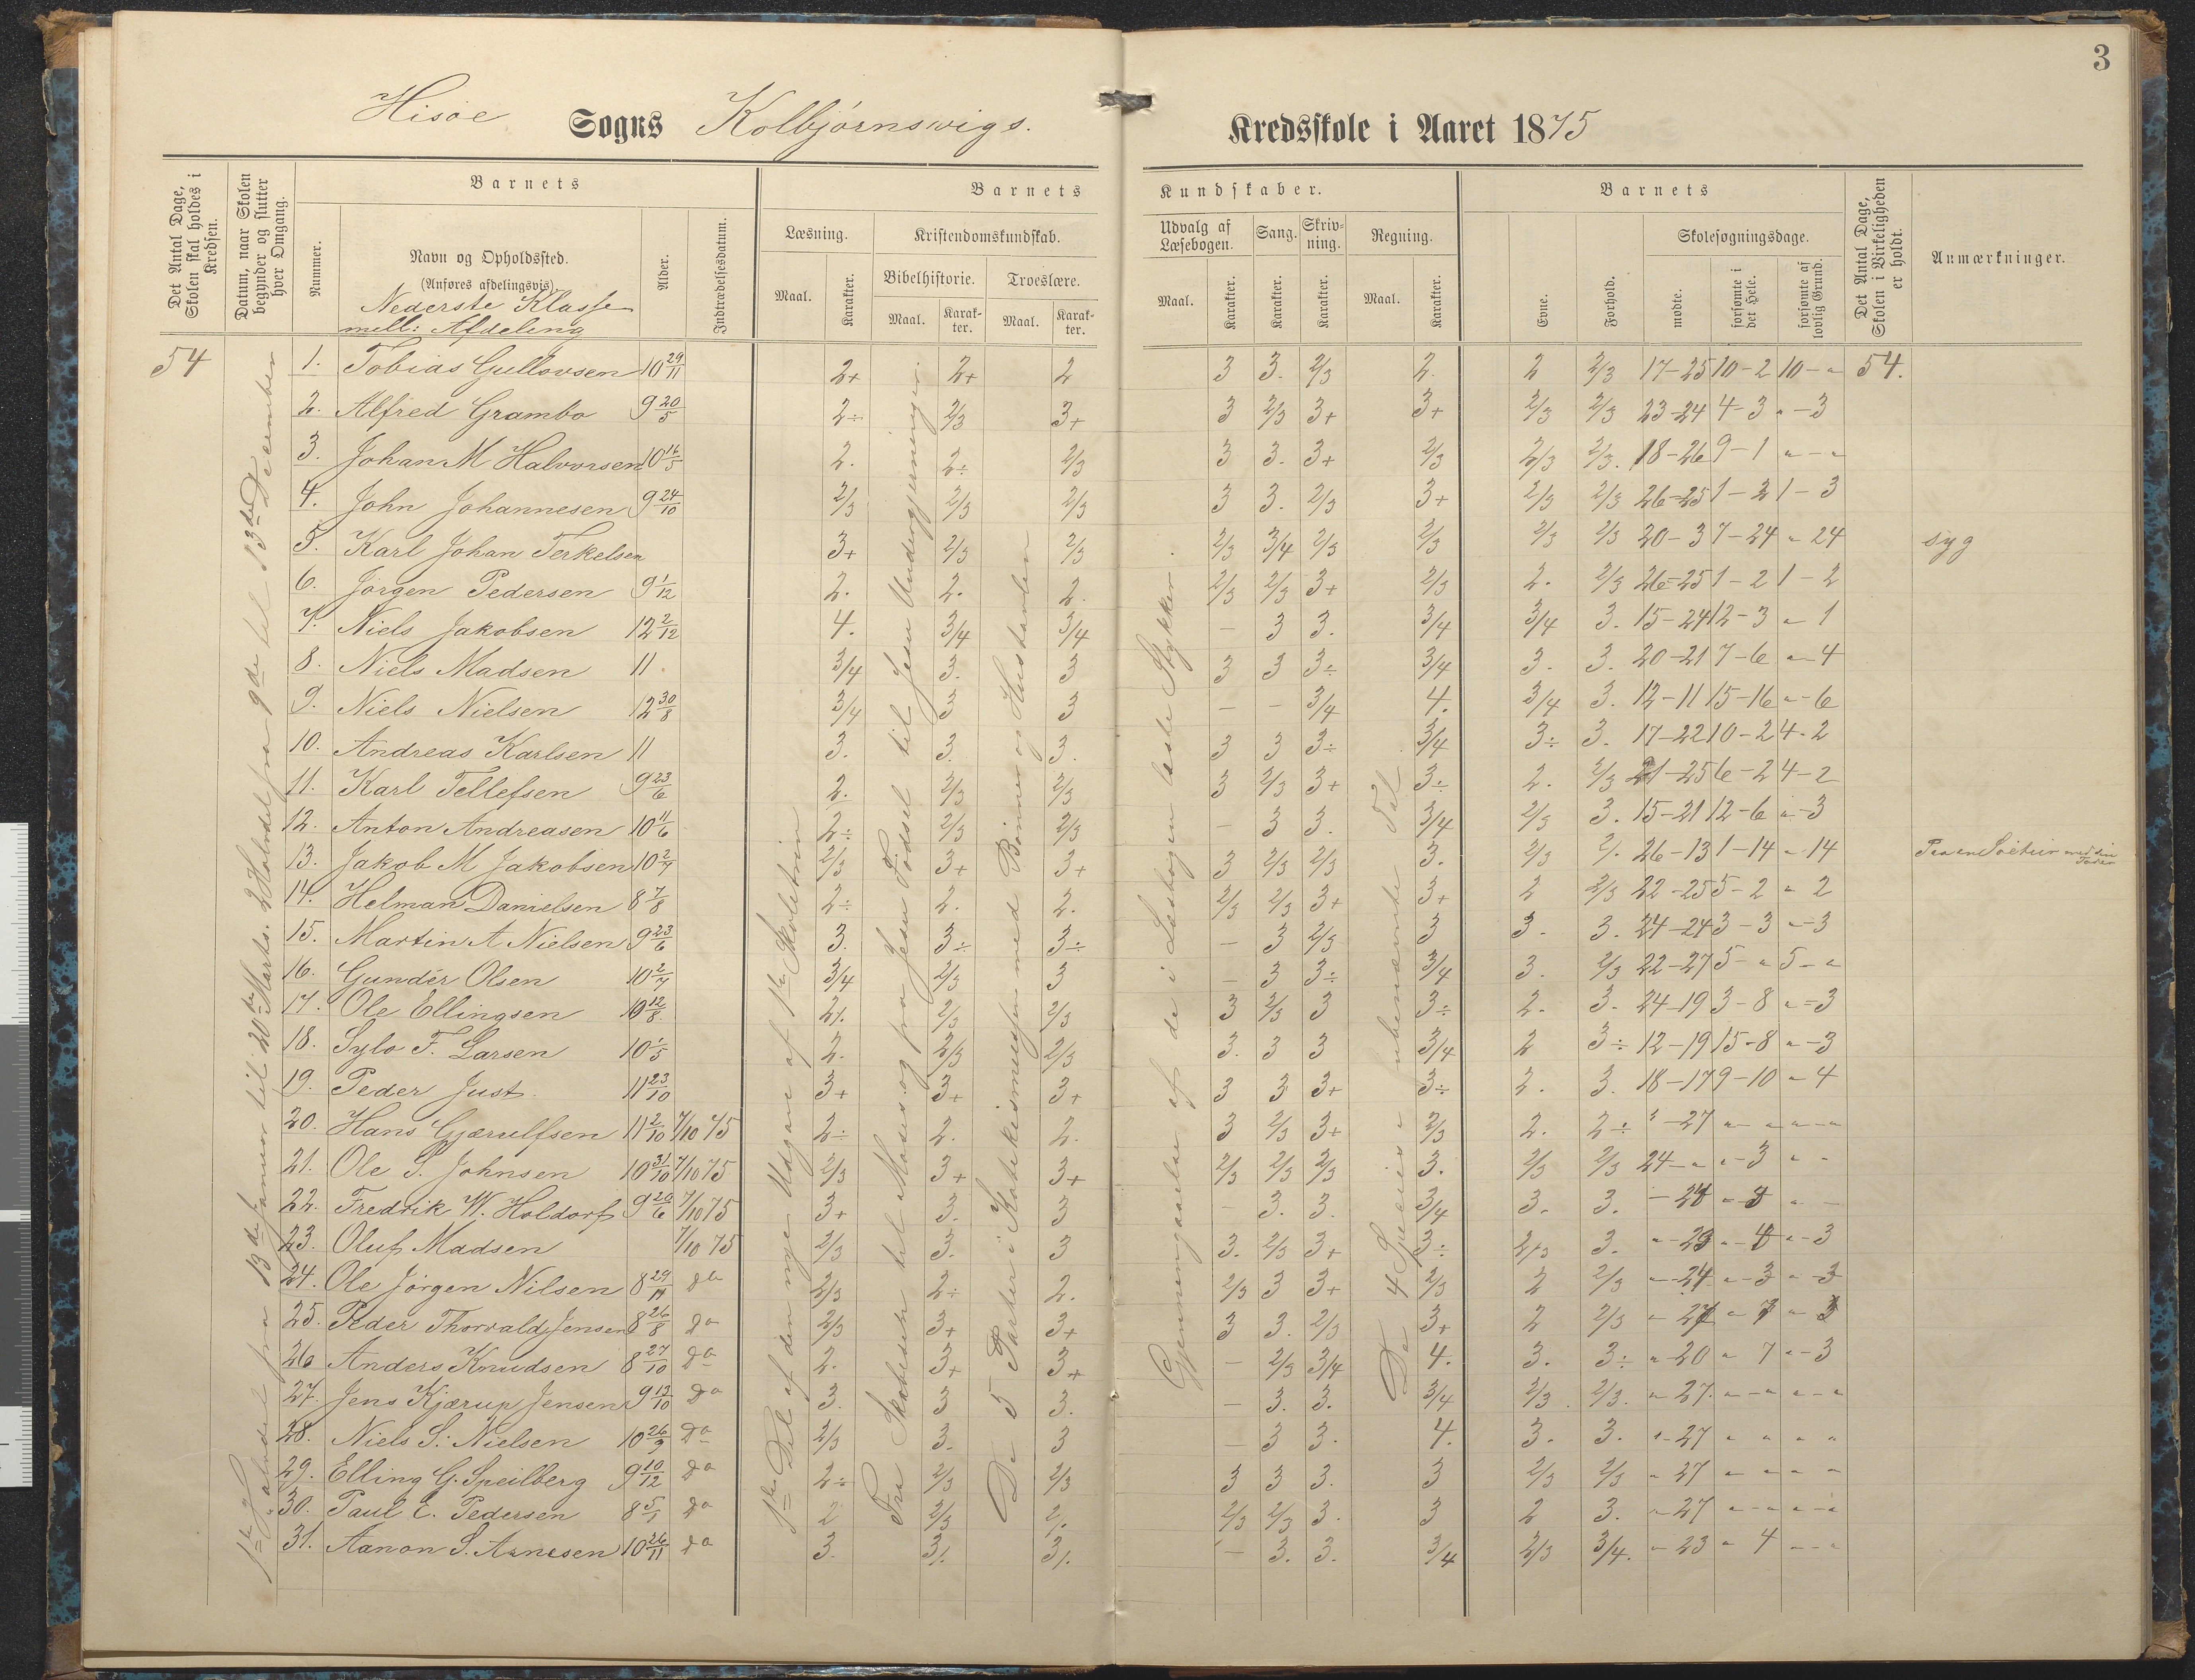 3
Hisøe Sogns Kolbjørnsvigs. Kredsskole i Aaret 1875
Det Antal Dage, Skolen skal holdes i Kredsen.
Datum, naar Skolen begynder og slutter hver Omgang.
Barnets
Nummer.
Navn og Opholdssted.
(Anføres afdelingsvis).
Nederste Klasse
mell: Afdeling
Alder.
Indtrædelsesdatum.
Barnets Kundskaber.
Læsning.
Maal.
Karakter.
Kristendomskundskab.
Bibelhistorie.
Maal.
Karakter.
Troeslære.
Maal.
Karakter.
Udvalg af Læsebogen.
Maal.
Karakter.
Sang.
Karakter.
Skrivning.
Karakter.
Regning.
Maal.
Karakter.
Barnets
Evne.
Forhold.
Skolesøgningsdage.
mødte.
forsømte i det Hele.
forsømte af lovlig Grund.
Det Antal Dage, Skolen i Virkeligheden er holdt.
Anmærkninger.
1ste Halvdel fra 13de Januar til 20de Marts. 2 Halvdel fra 9de til 13de December
1ste Del af den nye Udgave af 1ste Skoletrin
Fra Skabelsen til Moses og fra Jesu Fødsel til Jesu Undergjerninger.
De 5 Parter i Katekismusen med Bønner og Hustavlen
Gjennemgaaelse af de i Læsebogen læste Stykker.
De 4 Species i ubenævnte Tal
54 1. Tobias Gullovsen 10 29/11 2+ 2+ 2 3 3. 2/3 2. 2 2/3 17-25 10-2 10-" 54.
2. Alfred Grambo 9 20/5 2÷ 2/3 3+ 3 2/3 3+ 3+ 2/3 2/3 23-24 4-3 "-3
3. Johan M Halvorsen 10 16/5 2. 2÷ 2/3 3 3. 3+ 2/3 2/3 2/3. 18-26 9-1 "-"
4. John Johannesen 9 24/10 2/3 2/3 2/3 3 3. 2/3 3+ 2/3 2/3 26-25 1-2 1-3
5. Karl Johan Terkelsen 3+ 2/3 2/3 2/3 3/4 2/3 2/3 2/3 2/3 20-3 7-24 " 24 syg
6. Jørgen Pedersen 9 1/12 2. 2. 2. 2/3 2/3 3+ 2/3 2. 2/3 26-25 1-2 1-2
7. Niels Jakobsen 12 2/12 4. 3/4 3/4 - 3 3. 3/4 3/4 3. 15-24 12-3 " 1
8. Niels Madsen 11 3/4 3. 3 3 3 3÷ 3/4 3. 3. 20-21 7-6 "-4
9. Niels Nielsen 12 30/8 3/4 3 3 - - 3/4 4. 3/4 3. 12-11 15-16 "-6
10. Andreas Karlsen 11 3. 3. 3. 3 3 3÷ 3/4 3÷ 3. 17-22 10-2 4-2
11. Karl Tellefsen 9 23/6 2. 2/3 2/3 3 2/3 3+ 3÷ 2. 2/3 21-25 6-2 4-2
12. Anton Andreasen 10 11/6 2÷ 2/3 2/3 - 3 3. 3/4 2/3 3. 15-21 12-6 "-3
13. Jakob M Jakobsen 10 2/7 2/3 3+ 3+ 3 2/3 2/3 3. 2/3 2/. 26-13 1-14 "-14 Paa en Søetur med sin Fader
14. Helman Danielsen 8 7/8 2÷ 2. 2. 2/3 2/3 3+ 3+ 2 2/3 22-25 5-2 " 2
15. Martin A Nielsen 9 23/6 3. 3÷ 3÷ - 3 2/3 3 3. 3. 24-24 3-3 "-3
16. Gunder Olsen 10 2/7 3/4 2/3 3 - 3 3÷ 3/4 3. 2/3 22-27 5-" 5-"
17. Ole Ellingsen 10 12/8 2/. 2/3 2/3 3 2/3 3 3÷ 2. 3. 24-19 3-8 "-3
18. Sylo F. Larsen 10 1/5 2. 2/3 2/3 3. 3 3 3/4 2 3÷ 12-19 15-8 "-3
19. Peder Just. 11 23/10 3+ 3+ 3+ 3 3 3+ 3÷ 2. 3. 18-17 9-10 "-4
20. Hans Gjærulfsen 11 2/10 7/10 75 2÷ 2. 2. 3 2/3 3+ 2/3 2. 2÷ "-27 "- "-"
21. Ole S. Johnsen 10 31/10 7/10 75 2/3 3+ 3+ 2/3 2/3 2/3 3. 2/3 2/3 24-" "-3 "-
22. Fredrik W. Holdorf 9 20/6 7/10 75 3+ 3. 3 - 3. 3. 3/4 3. 3. -24 "-3 "-
23. Oluf Madsen 7/10 75 2/3 3. 3 3. 2/3 3+ 3÷ 2/3 3. "-23 "-4 "-3
24. Ole Jørgen Nilsen 8 29/11 do 2/3 2÷ 2. 2/3 3 3+ 2/3 2 2/3 "-24 "-3 "-3
25. Peder Thorvald Jensen 8 26/8 do 2/3 3+ 3+ 3 3. 2/3 3+ 2 2/3
26 Anders Knudsen 8 27/10 do 2. 3+ 3+ - 2/3 3/4 4. 3. 3÷ "-20 " 7 "-3
27. Jens Kjærup Jensen 9 13/10 do 3. 3 3. - 3. 3. 3/4 2/3. 2/3. "-27. "-" "-"
28. Niels S. Nielsen 10 26/9 do 2/3 3. 3 - 3 3. 4. 3. 3. "-27 " " " "
29. Elling G. Speilberg 9 10/12 do 2÷ 2/3 2/3 3 3 3. 3 2/3 2/3 "-27 " - " -
30. Paul E. Pedersen 8 5/1 do 2 2/3 2/. 2/3 2/3 3. 3 2 3. "-27 "-" "-"
31. Aanon S. Arnesen 10 26/11 do 3. 3/. 3/. - 3. 3. 3/4 2/3 3/4. "-23 " 4 "-"